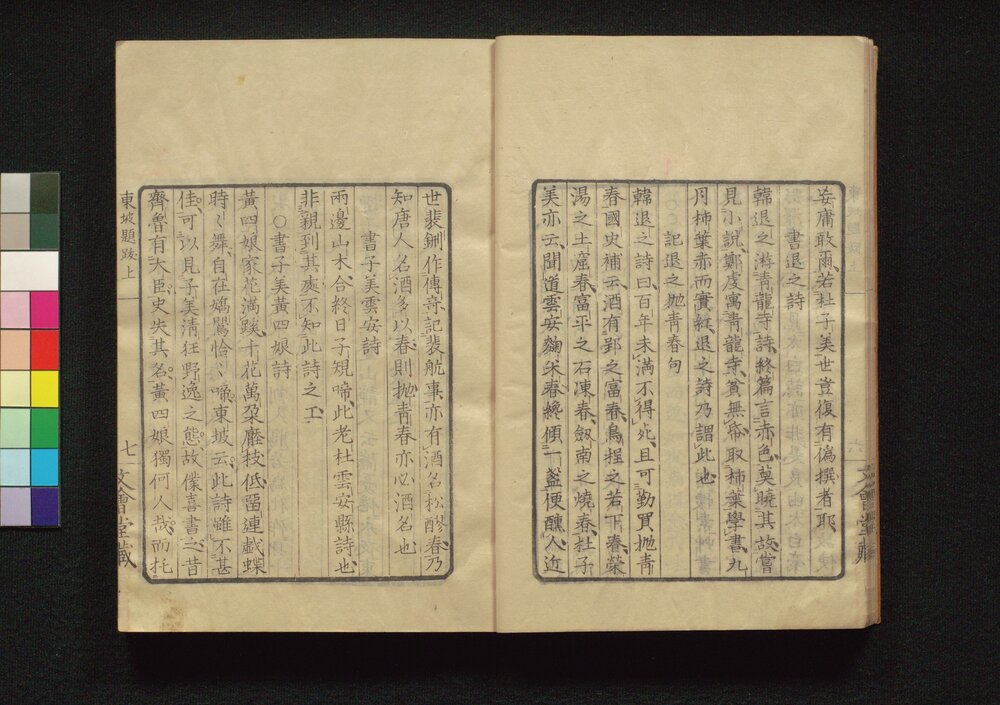 妄庸敢爾、若杜子美世豈復有偽撰者耶、
書退之詩
韓退之游青龍寺詩、終篇言赤色、莫曉其故、嘗
見小說、鄭虔寓青龍寺、貧無帋、取柿葉學書、九
月柿葉赤而實紅、退之詩乃謂此也、
記退之拋青春句
韓退之詩曰百年未滿不得死、且可勤買拋青
春國史補云酒有郢之富春、烏程之若下春、滎
陽之土窟春、富平之石凍春、劔南之燒春、杜子
美亦云、聞道雲安麴米春、纔傾一盞便醺人、近
世裴鉶作傳奇、記裴航事、亦有酒名松醪春、乃
知唐人名酒多以春、則拋青春亦必酒名也、
書子美雲安詩
兩邊山木合終日子規啼、此老杜雲安縣詩也、
非親到其處不知此詩之工、
○書子美黃四娘詩
黃四娘家花滿蹊、千花萬朵壓枝低、留連戲蝶
時〻舞、自在嬌鶯恰〻啼、東坡云、此詩雖不甚
佳、可以見子美清狂野逸之態、故僕喜書之、昔
齊魯有大臣、史失其名、黃四娘獨何人哉、而托
東坡題跋上
七
文會堂藏
六
文會堂藏